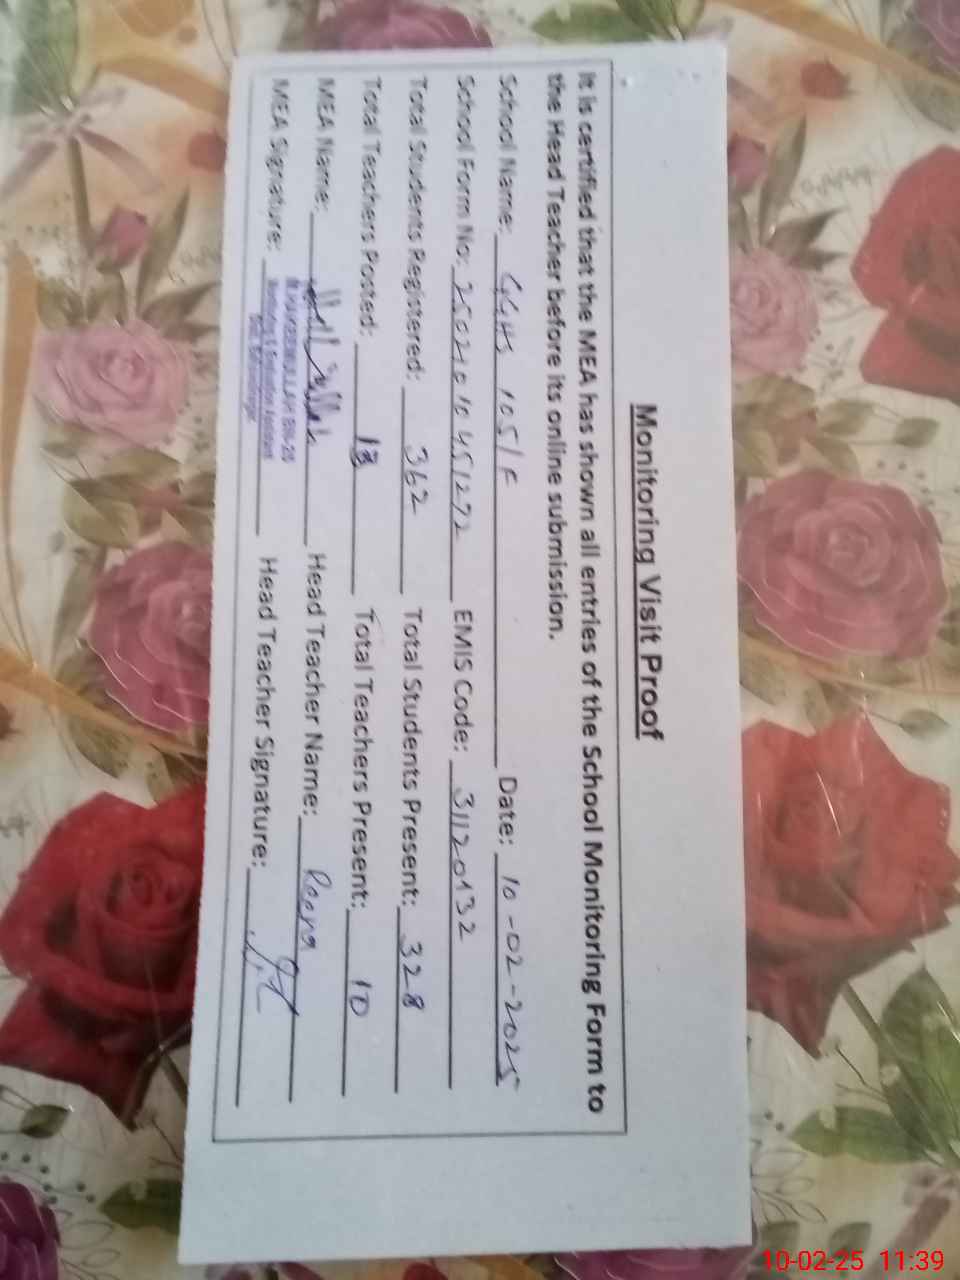 Monitoring Visit Proof
It is certified that the MEA has shown all entries of the School Monitoring Form to
the Head Teacher before its online submission.
School Name: GGHS 105/F Date: 10-02-2025
School Form No: 25021010451272 EMIS Code: 31120132
Total Students Registered: 362 Total Students Present: 328
Total Teachers Posted: Total Teachers Present: 10
MEA Name: Head Teacher Name:
MEA Signature: Head Teacher Signature:
10-02-25 11:39